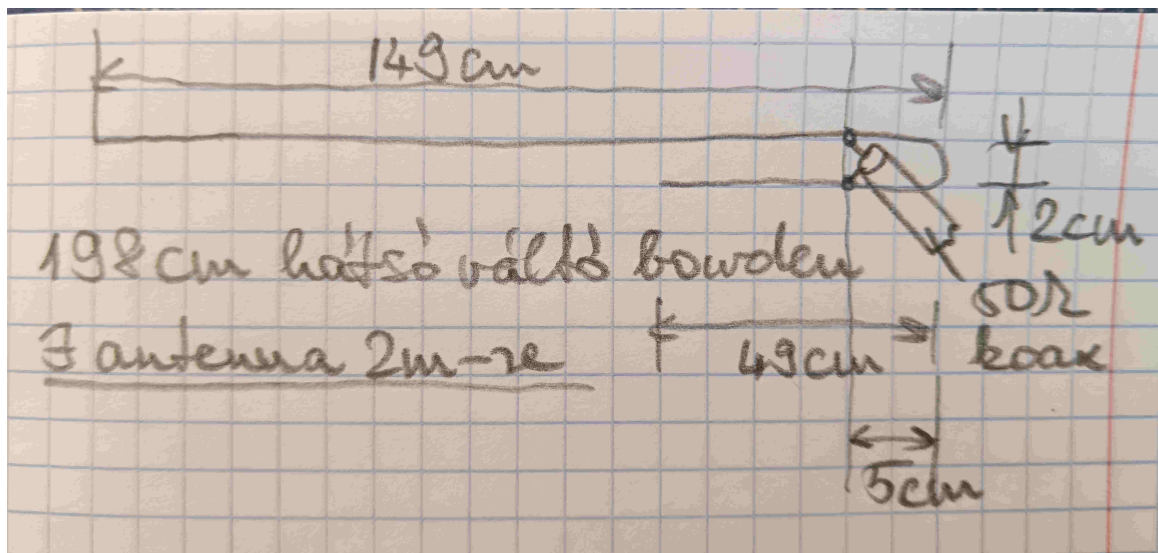 149cm
12cm
198cm hátsó váltó bowden
50Ω
J antenna 2m-re
49cm
koax
5cm